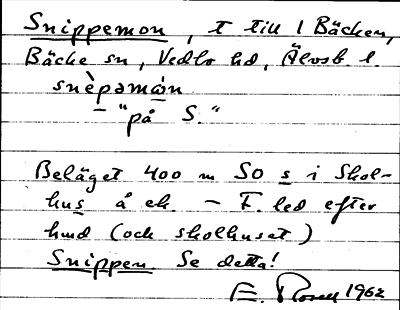 Snippemon, t till l Bäcken,
Bäcke sn, Vedbo hd, Älvsb. l.
snèpəmón
"på S."
Beläget 400 m SO s i Skol-
hus å ek. – F. led efter
hmd (och skolhuset)
Snippen. Se detta!
E. Rosell 1962